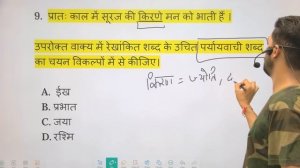 9. प्रातः काल में सूरज की किरणे मन को भाती हैं ।
उपरोक्त वाक्य में रेखांकित शब्द के उचित पर्यायवाची शब्द
का चयन विकल्पों में से कीजिए।
किरण = ज्योति,
A. ईख
B. प्रभात
C. जया
D. रश्मि